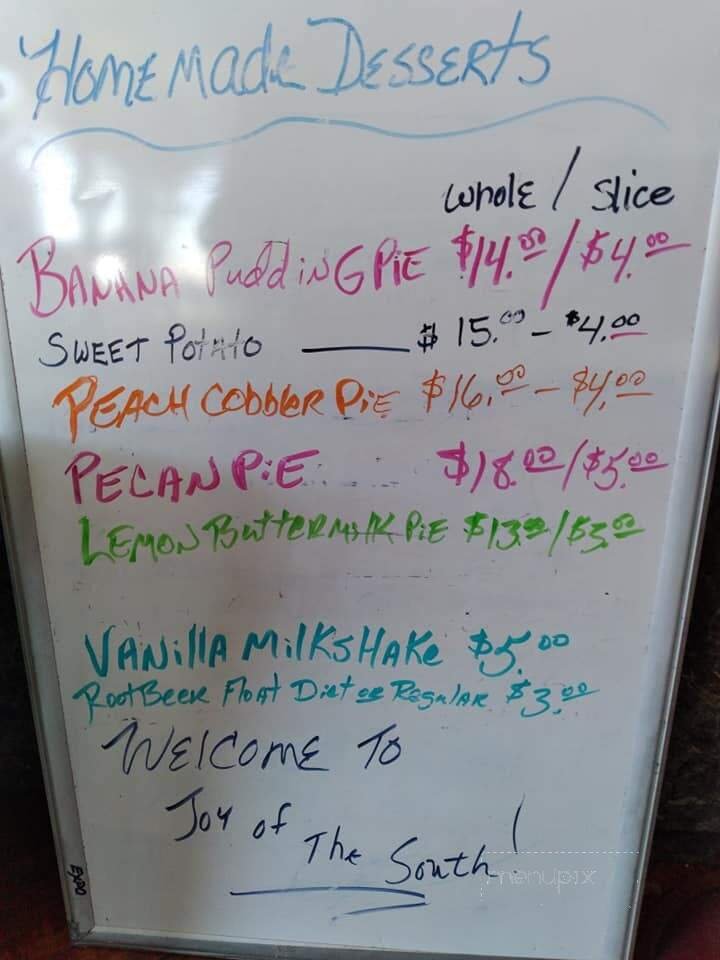 HomeMade Desserts
whole / slice
Banana Pudding Pie $14.00 / $4.00
Sweet Potato ____ $15.00 - $4.00
Peach Cobbler Pie $16.00 - $4.00
Pecan Pie $18.00 / $5.00
Lemon Buttermilk Pie $13.00 / $3.00
Vanilla Milkshake $5.00
Root Beer Float Diet or Regular $3.00
Welcome To
Joy of
The South!
EXPO
menupix